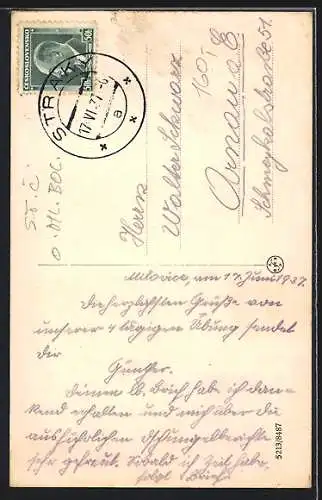 ČESKOSLOVENSKO
50
17.VI.37
a
S.J.Č.
O.
Herrn
Walter Schwarz
160
Arnau a E
Schmeykalstraße 51.
Milovice, am 17. Juni 1937.
Die herzlichsten Grüße von
unserer 4 tägigen Übung sendet
dir
Günther.
Deinen lb. Brief habe ich dan-
kend erhalten und mich über die
ausführlichen
sehr gefreut. Sobald ich Zeit habe,
folgt Brief.
5213/8487